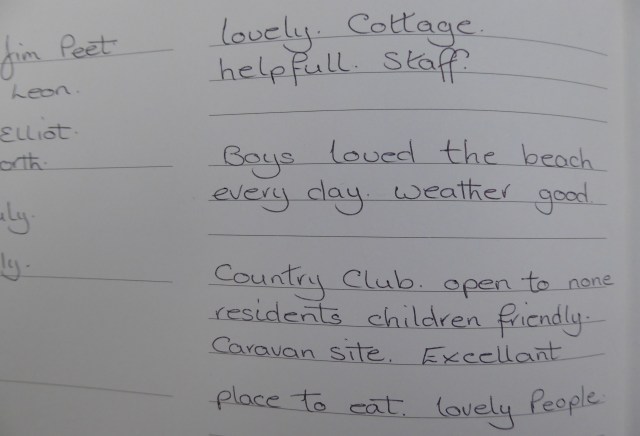 Jim Peet
Leon.
Elliot.
lovely. Cottage.
helpfull. Staff.
Boys loved the beach
every day. weather good.
Country Club. open to none
residents children friendly.
Caravan site. Excellant
place to eat. lovely People.